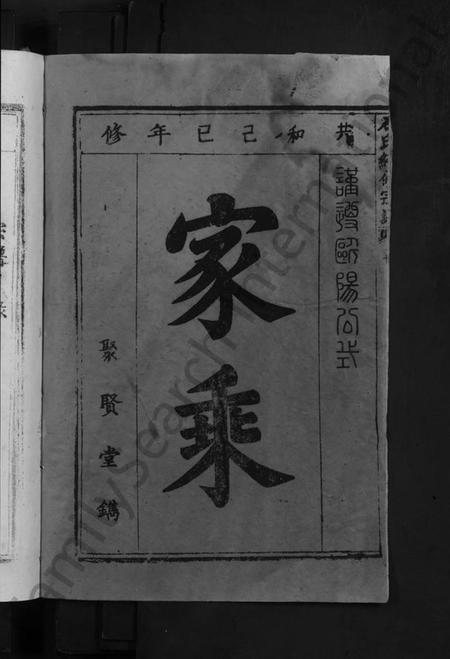 共和己巳年修
謹遵歐陽公式
家乘
聚賢堂鐫
FamilySearch International